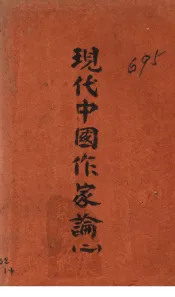 現代中國作家論(二)
695